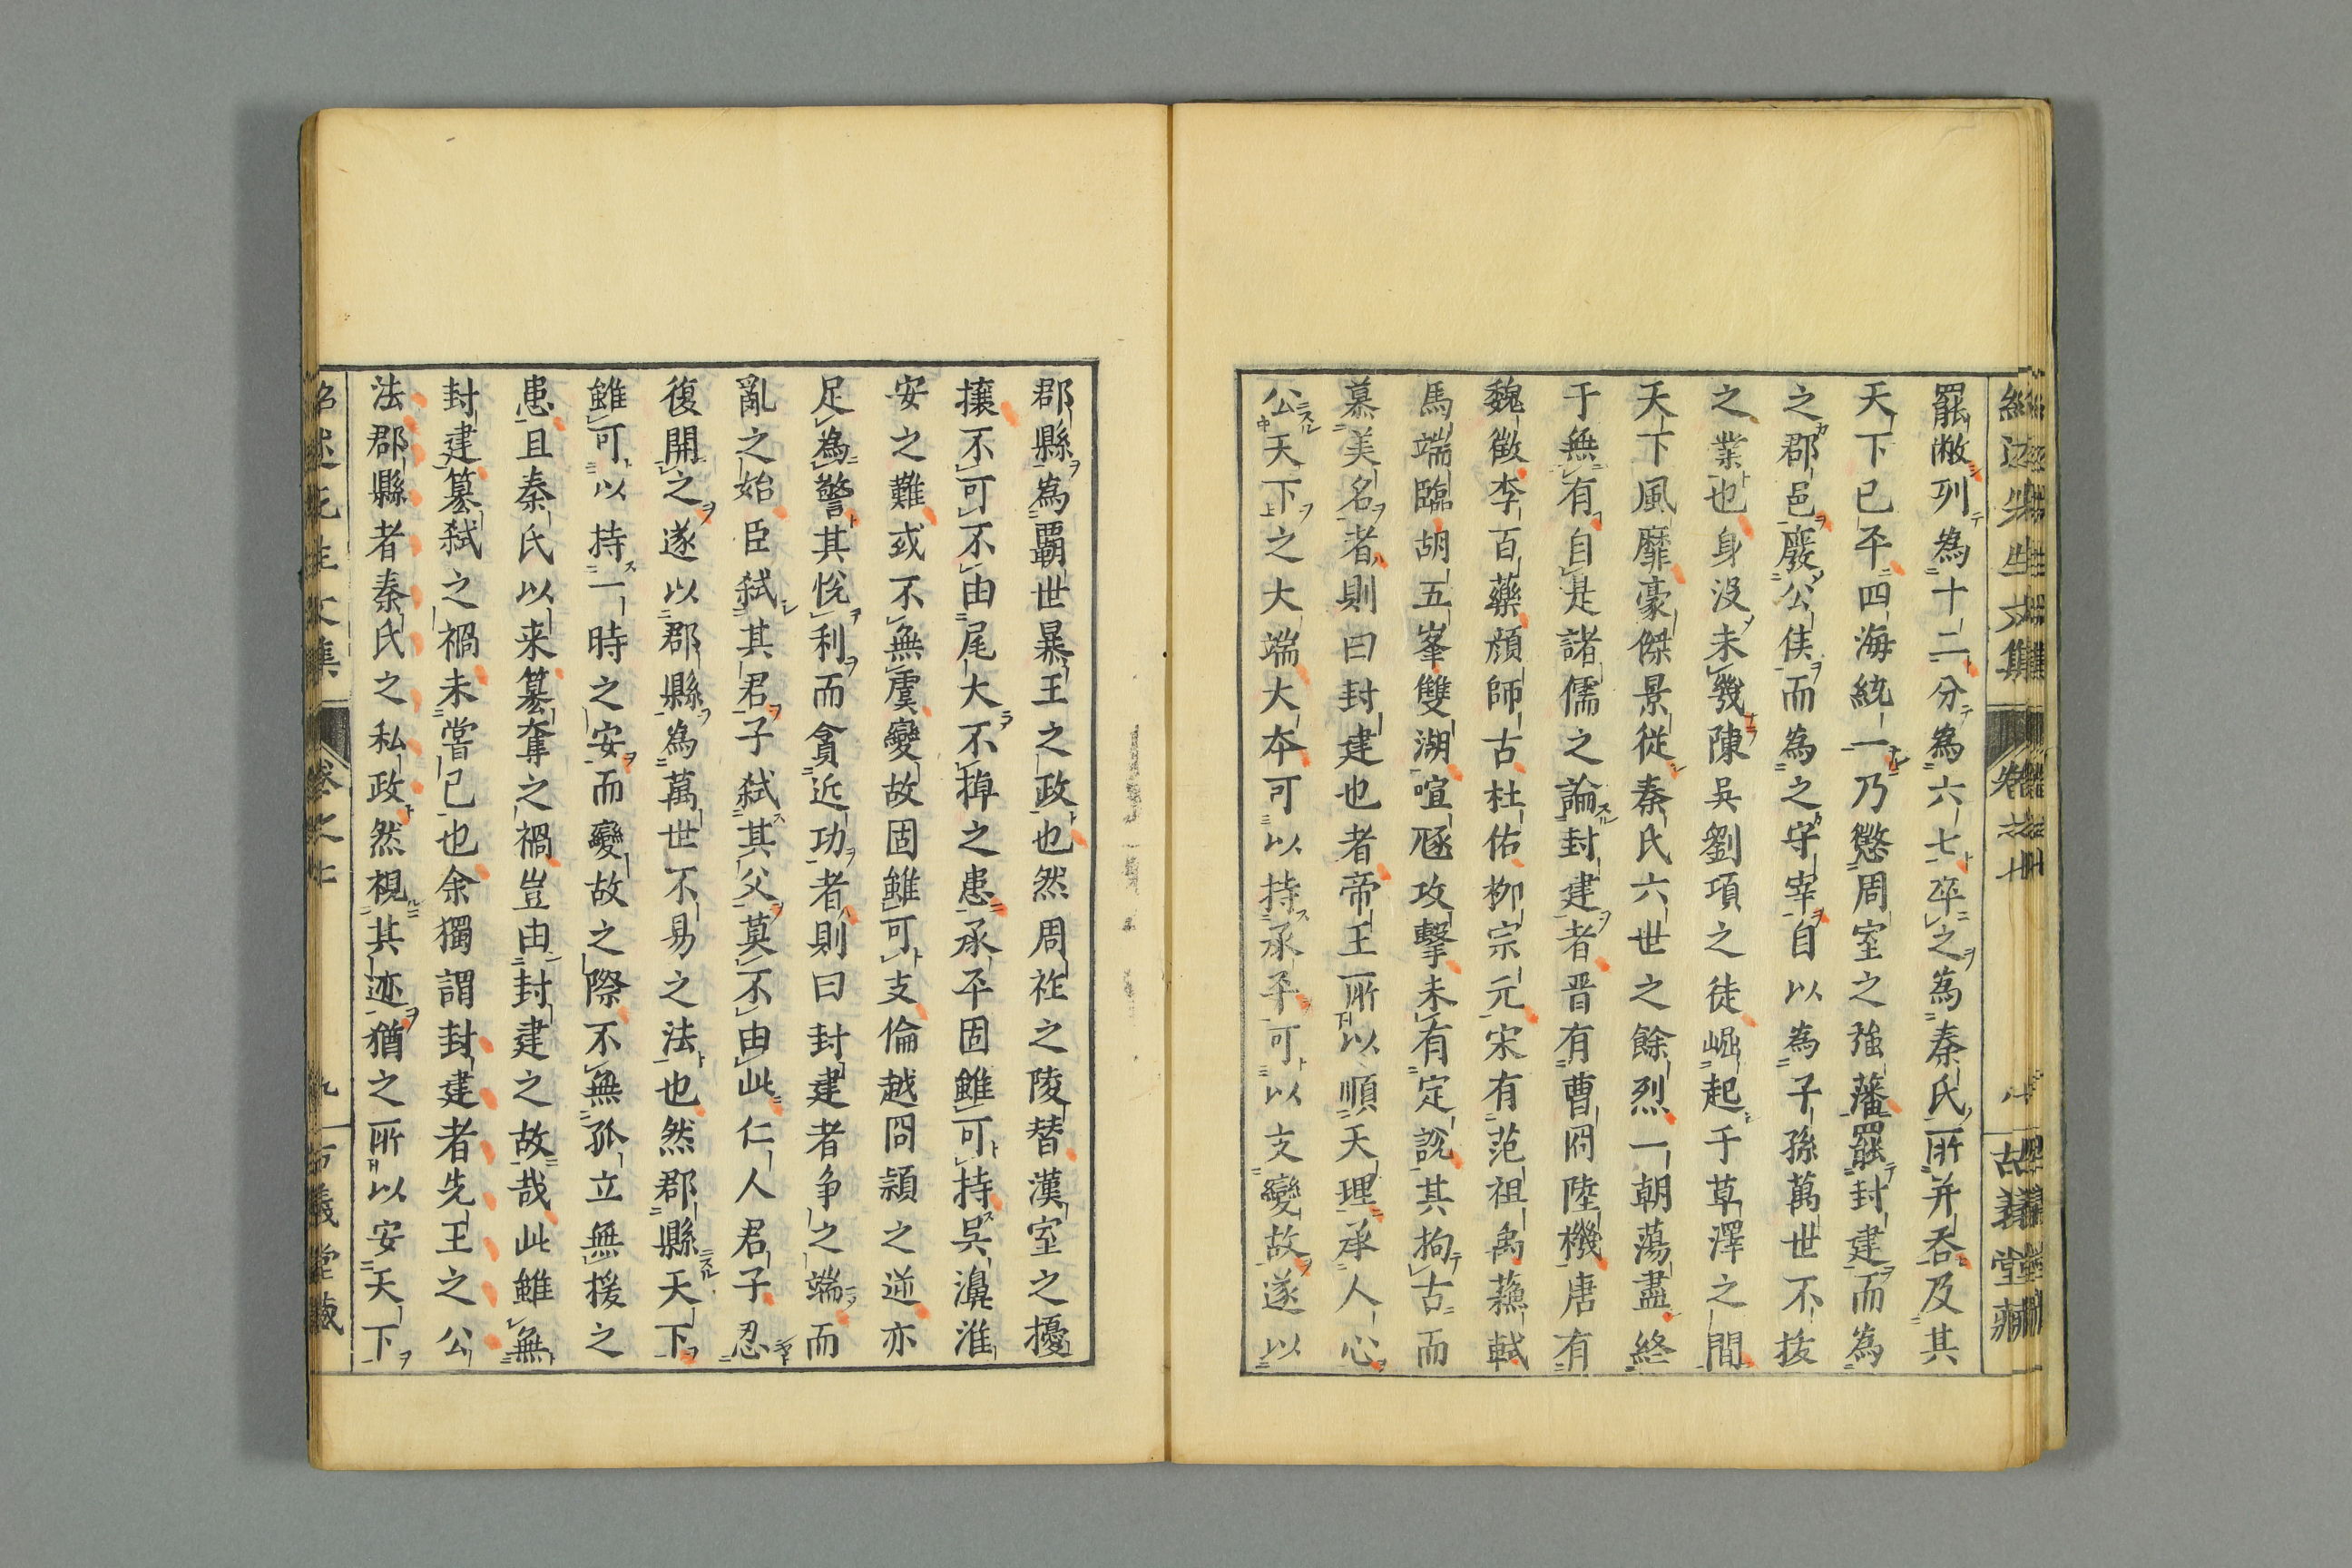 罷敝列為十二分為六七卒之為秦氏所并呑及其
天下已平四海統一乃懲周室之強藩罷封建而為
之郡邑廢公侯而為之守宰自以為子孫萬世不抜
之業也身沒未幾陳吳劉項之徒崛起于草澤之間
天下風靡豪傑景從秦氏六世之餘烈一朝蕩盡終
于無有自是諸儒之論封建者晋有曹冏陸機唐有
魏徵李百藥顔師古杜佑柳宗元宋有范祖禹蘓軾
馬端臨胡五峯雙湖喧豗攻擊未有定說其拘古而
慕美名者則曰封建也者帝王所以順天理承人心
公天下之大端大夲可以持承平可以支變故遂以
郡縣為覇世暴王之政也然周祚之陵替漢室之擾
攘不可不由尾大不掉之患承平固雖可持吳濞淮
安之難或不無虞變故固雖可支倫越冏頴之逆亦
足為警其悅利而貪近功者則曰封建者争之端而
亂之始臣弑其君子弑其父莫不由此仁人君子忍
復開之遂以郡縣為萬世不易之法也然郡縣天下
雖可以持一時之安而變故之際不無孤立無援之
患且秦氏以来簒奪之禍豈由封建之故哉此雖無
封建簒弑之禍未嘗已也余獨謂封建者先王之公
法郡縣者秦氏之私政然視其迹猶之所以安天下